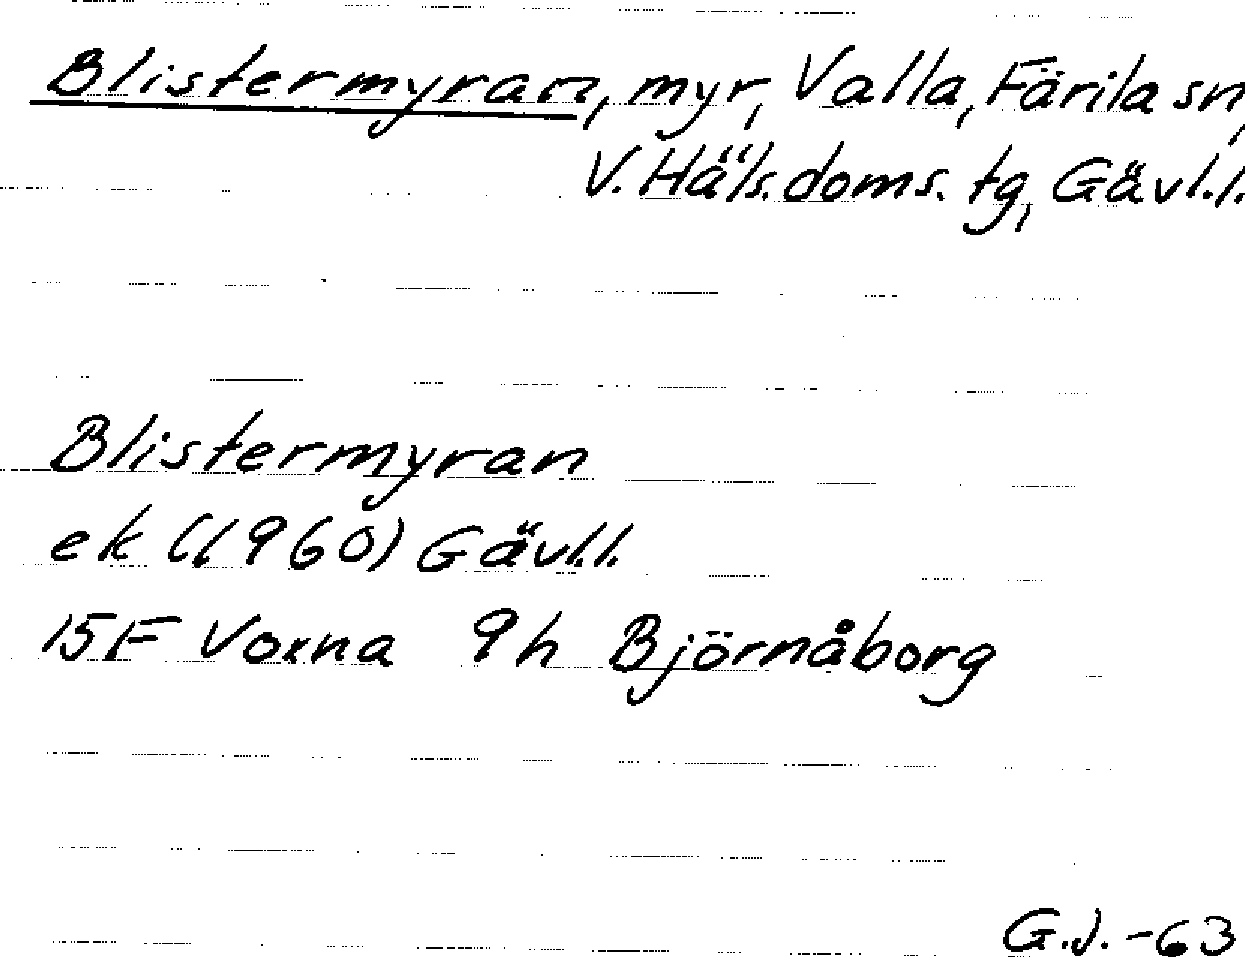 Blistermyran, myr, Valla, Färila sn,
V. Häls. doms. tg, Gävl.l.
Blistermyran
ek (1960) Gävl.l.
15F Voxna 9h Björnåborg
G.J. -63